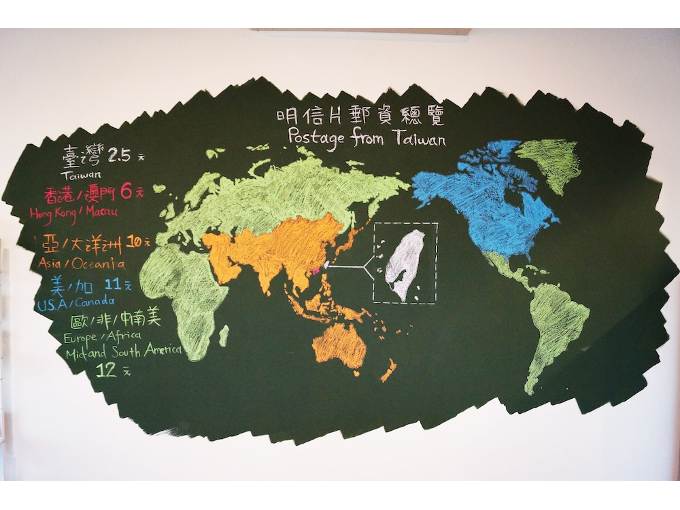 明信片郵資總覽
Postage from Taiwan
臺灣 2.5 元
Taiwan
香港/澳門 6 元
Hong Kong/Macau
亞/大洋洲 10 元
Asia/Oceania
美/加 11 元
USA/Canada
歐/非/中南美
Europe/Africa
Mid and South America
12 元